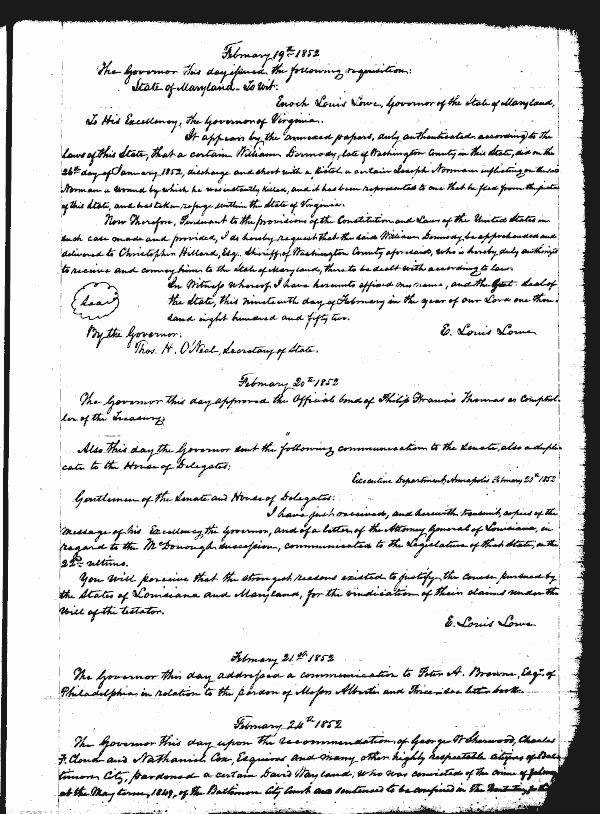 February 19th 1852
The Governor this day issued the following requisition:
State of Maryland - To Wit:
Enoch Louis Lowe, Governor of the State of Maryland,
To His Excellency, the Governor of Virginia.
It appears by the annexed papers, duly authenticated according to the
Laws of this State, that a certain William Dormody, late of Washington County in this State, did on the
26th day of January 1852, discharge and shoot with a Pistol a certain Joseph Norman inflicting on the said
Norman a wound by which he was instantly killed, and it has been represented to me that he fled from the justice
of this State, and has taken refuge within the State of Virginia.
Now Therefore, Pursuant to the provisions of the Constitution and Laws of the United States in
such case made and provided, I do hereby request that the said William Dormody be apprehended and
delivered to Christopher Hilliard, Esq. Sheriff of Washington County aforesaid, who is hereby duly authorized
to receive and convey him to the State of Maryland, there to be dealt with according to law.
In Witness whereof, I have hereunto affixed my name, and the Great Seal of
Seal
the State, this nineteenth day of February in the year of our Lord one thou-
sand eight hundred and fifty two.
By the Governor. E. Louis Lowe
Thos. H. O'Neal, Secretary of State.
February 20th 1852
The Governor this day approved the Official bond of Philip Francis Thomas as Comptrol-
ler of the Treasury.
Also this day the Governor sent the following communication to the Senate, also a dupli-
cate to the House of Delegates;
Executive Department, Annapolis February 20th 1852
Gentlemen of the Senate and House of Delegates:
I have just received, and herewith transmit, copies of the
message of his Excellency, the Governor, and of a letter of the Attorney General of Louisiana, in
regard to the McDonough succession, communicated to the Legislature of that State, on the
22nd ultimo.
You will perceive that the strongest reasons existed to justify the course pursued by
the States of Louisiana and Maryland, for the vindication of their claims under the
Will of the testator.
E. Louis Lowe
February 21st 1852
The Governor this day addressed a communication to Peter A. Browne, Esqr. of
Philadelphia in relation to the pardon of Messrs Alberti and Price - see letter book.
February 24th 1852
The Governor this day upon the recommendation of George W Sherwood, Charles
F. Cloud and Nathaniel Cox, Esquires and many other highly respectable citizens of Bal-
timore City, pardoned a certain David Wayland, who was convicted of the crime of
at the May term, 1849, of the Baltimore City Court and sentenced to be confined in the